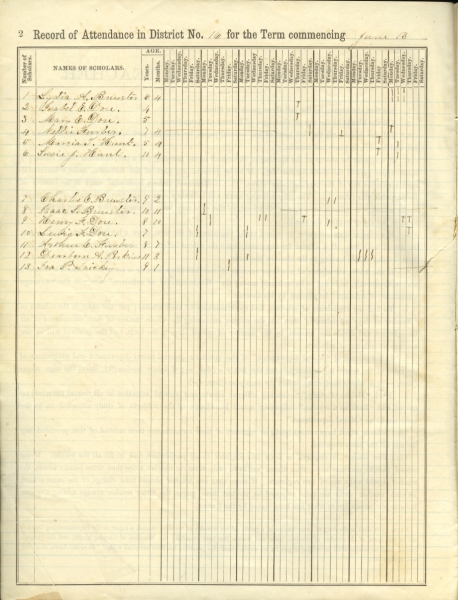 2 Record of Attendance in District No. 14 for the Term commencing June 13
Number of Scholars. NAMES OF SCHOLARS. AGE. Years. Months. Monday. Tuesday. Wednesday. Thursday. Friday. Saturday.
1 Lydia A. Brewster 6 4
2 Isabel E. Dore 4
3 Mary E. Dore 5
4 Nellie Furber 7 11
5 Marcia T. Hunt 5 9
6 Susie J. Hunt 11 4
7 Charles E. Brewster 9 2
8 Isaac L. Brewster 10 11
9 Henry A. Dore 8 10
10 Dore 7
11 Arthur E. Furber 8 7
12 Dearborn A. Perkins 11 8
13 Ira P. 9 1